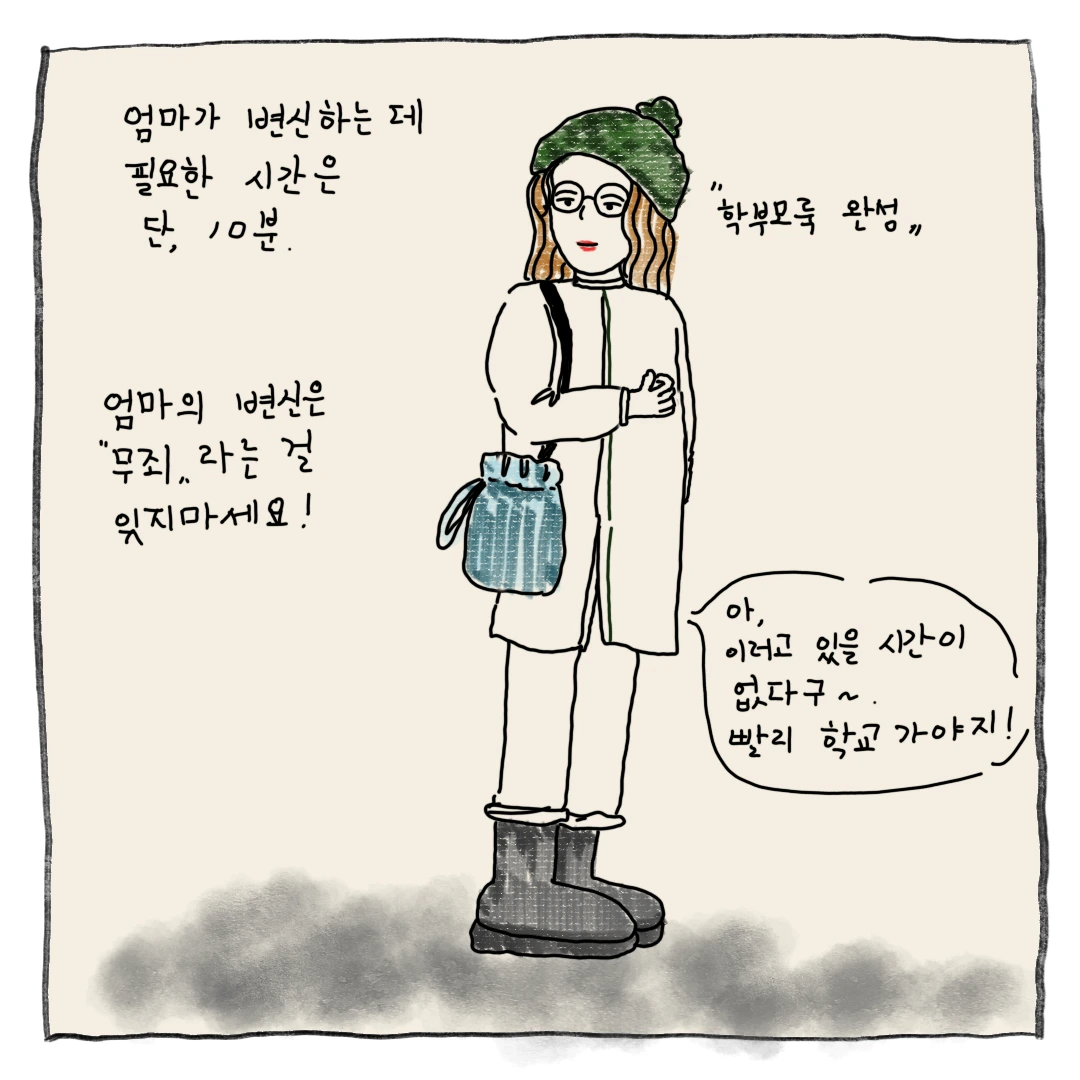 엄마가 변신하는 데
필요한 시간은
단, 10분.
"학부모룩 완성"
엄마의 변신은
"무죄"라는 걸
잊지마세요!
아,
이러고 있을 시간이
없다구~.
빨리 학교 가야지!